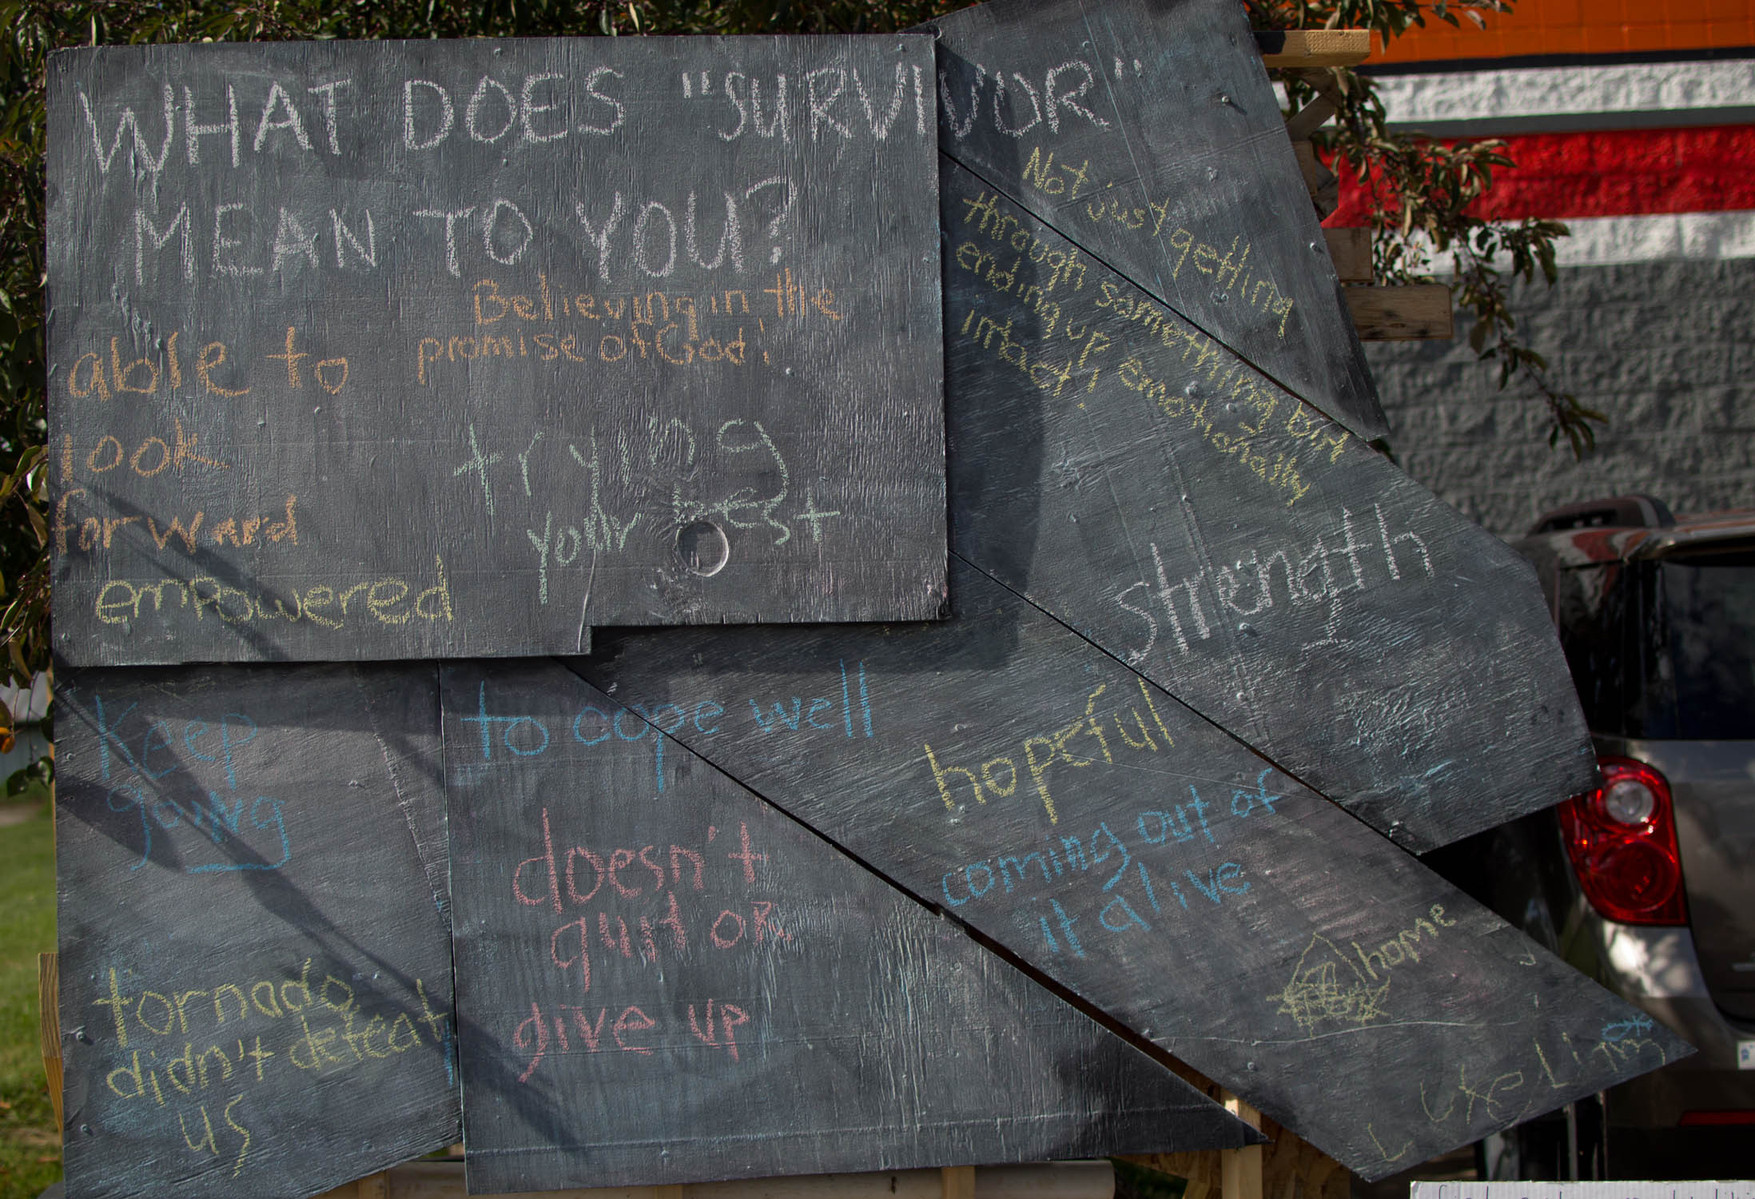 WHAT DOES "SURVIVOR"
MEAN TO YOU?
Believing in the
promise of God!
able to
look
forward
trying
your best
empowered
Not just getting
through something but
ending up emotionally
intact!
strength
Keep
going
to cope well
hopeful
coming out of
it alive
doesn't
quit OR
give up
home
tornado
didn't defeat
us